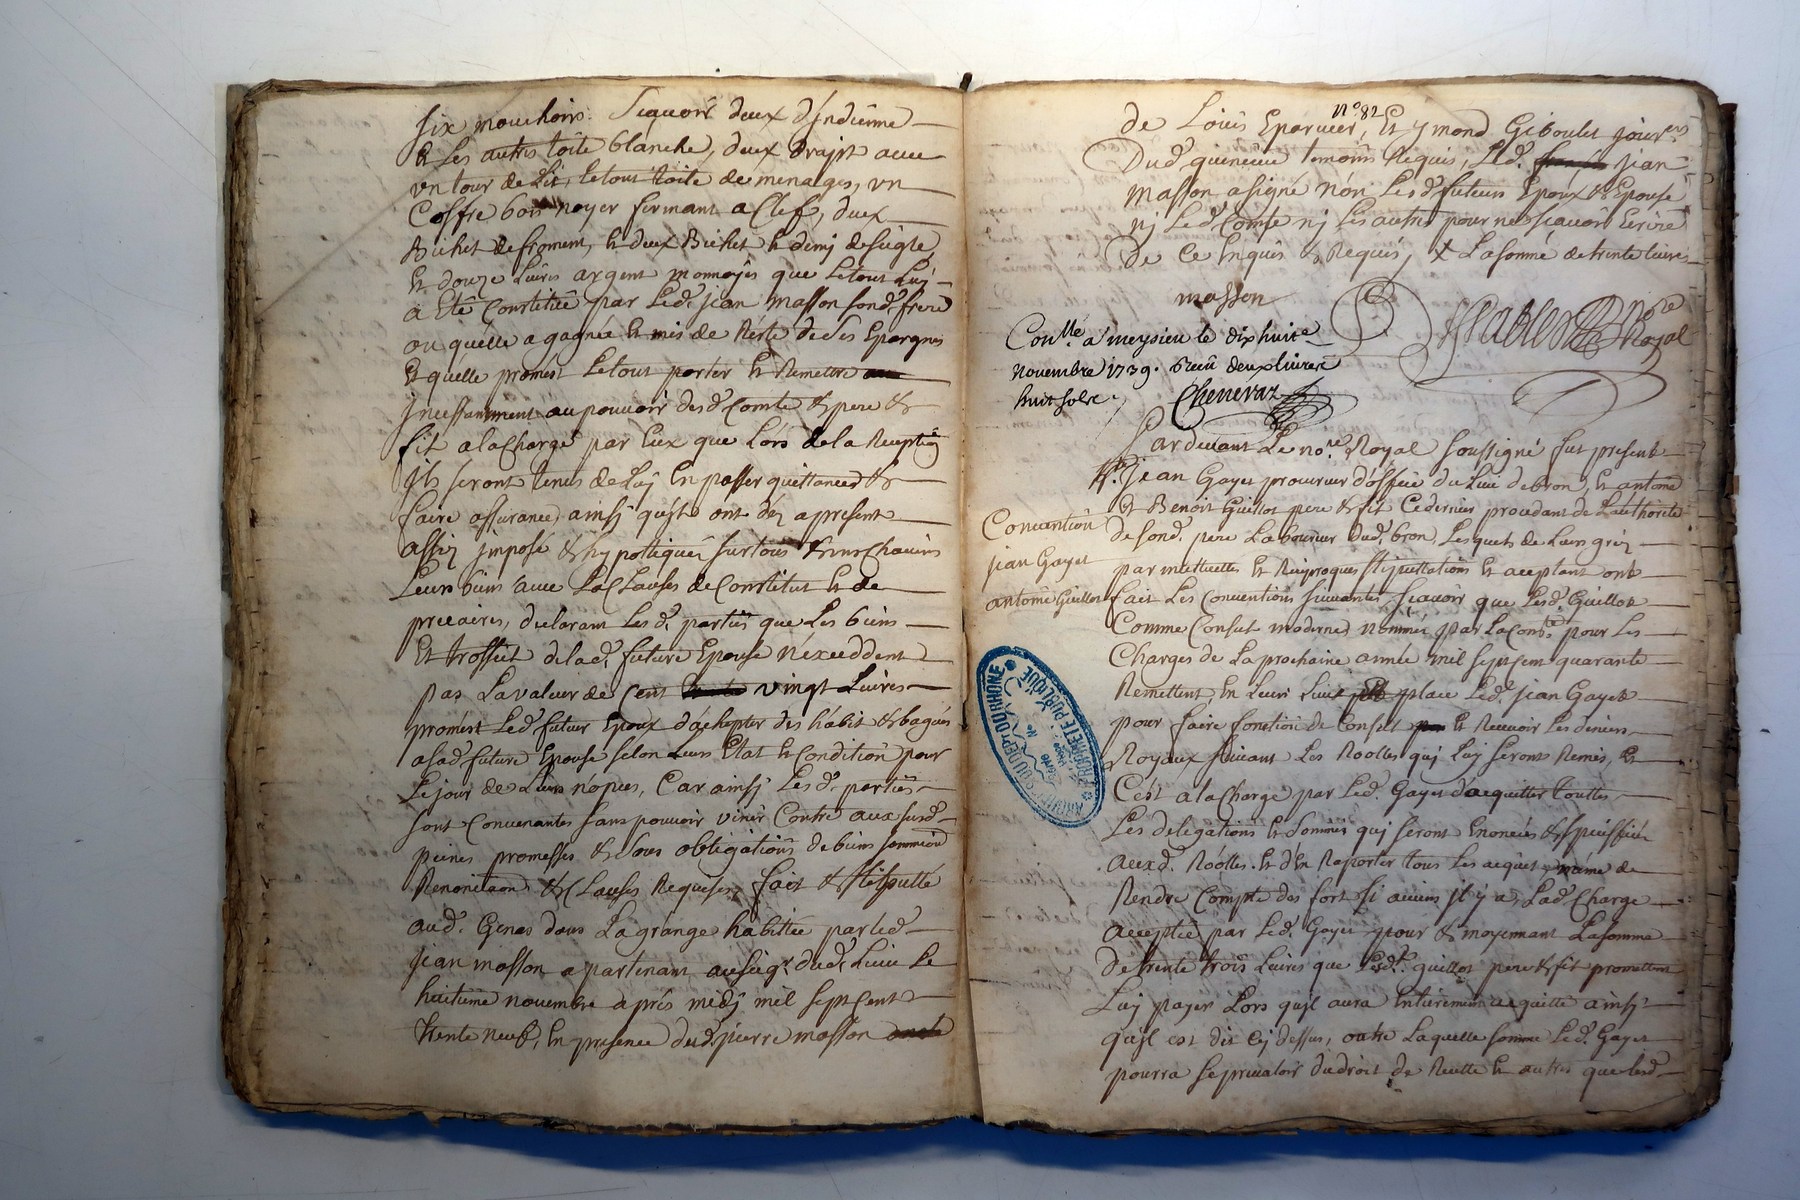 six mouchoirs. Scavoir deux d'Indienne
et les autres toile blanche, deux drapt avec
un tour de Lit, le tout toile de menages, un
Coffre bois noyer fermant a Clef, deux
Bichet de froment, et deux Bichet et demy de seigle
et douze Livres argent monnoyés que le tout Luy
a Eté Constituée par Led. jean masson son d. frere
ou quelle a gagnée et mis de Reste de ses Epargnes
et quelle promést le tout porter et Remettre
jncessamment au pouvoir desd Comte & pere &
fit a la Charge par Eux que Lors de la Reception
jls seront tenus de Luy En passer quittances &
faire assurance, ainsy qu'jls ont déz a present
assis jmposé & hypotéquéz sur tous & uns Chacuns
Leurs biens avec La Clauses de Constitut et de
precaires, declarant Lesd. parties que Les biens
Et trossiet de lad. future Epouse n'exceddent
pas La valeur de Cent vingt Livres
promést Led futur Epoux d'achepter des habit & bagues
a sad future Epouse selon Leurs Etat et Condition pour
Le jour de Leurs nópces, Car ainsy Lesd. parties
sont Convenantes sans pouvoir venir Contre aux susd
peines promesses & sous obligations de biens
Renonciaon & Clauses Requeses, fait & stipullé
aud. Genas dans La grange habittée par led
jean masson apartenant au seigr. dud. Lieu Le
huitième novembre aprés midy mil sept Cent
trente neuf, En presence dud pierre masson
n° 82
de Loüis Eparvier, Et ymond Giboulet jour.rs
Dud. temoins Requis, Led. jean
masson a signé nón Lesd futeurs Epoux & Epouse
nj Led Comte nj Les autres pour ne scavoir Ecrire
De Ce Enquis & Requis, x La somme de trente livres
masson
Royal
Con.llé a meysieu le dix huit.e
novembre 1739. Receü deux livres
huit sols.
Chenevaz
Pardevant Le no.re Royal soussigné fut present
Sr. jean Gayet procureur d'office du Lieu de bron, et antoine
& Benoit Guillot pere & fit Ce dernier procedant de L'authorité
de sond. pere Laboureur dud. bron, Lesquels de Leurs gréz
par mutuelles et Reciproques stipullations et aceptant ont
fait Les Conventions suivantes, scavoir que Lesd. Guillot
Convention
jean Gayet
antoine Guillot
Comme Consul moderne nommés par La Con.té pour Les
Charges de La prochaine année mil sept cent quarante
Remettent, En Leurs Lieux place Led. jean Gayet
pour faire fonction de Consul et Recevoir Les deniers
Royaux suivant Les Roolles quj Luy seront Remis, et
C'est a la Charge par Led. Gayet d'acquitter touttes
Les delegations et sommes quj seront Enoncées & spécifiées
auxd. Roólles. et d'En Raporter tous Les acquets, même de
Rendre Compte des fort si aucuns jl y a, Lad. Charge
acceptée par Led. Gayet pour & moyennant La somme
de trente trois Livres que guillot pere & fit promettent
Luy payer Lors qu'jl aura Entierement acquitté ainsy
qu'jl est dit Cy dessus, outre Laquelle somme Led. Gayet
pourra se prevaloir du droit de Recette et autres que lesd
ARCHIVES DU DEPT DU RHONE
PROPRIETE PUBLIQUE